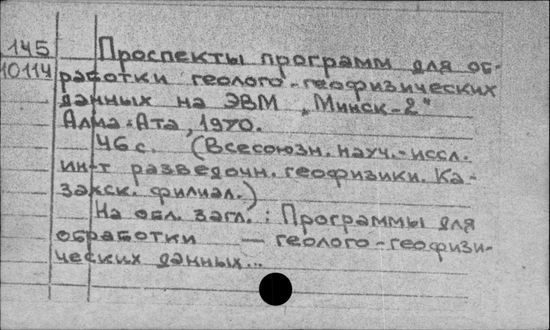 145 Проспекты программ для об-
10114 работки геолого-геофизических
данных на ЭВМ „Минск-2"
Алма-Ата, 1970.
46 с. (Всесоюзн. науч.-иссл.
ин-т разведочн. геофизики. Ка-
захск. филиал.)
На обл. загл.: Программы для
обработки — геолого-геофизи-
ческих данных...